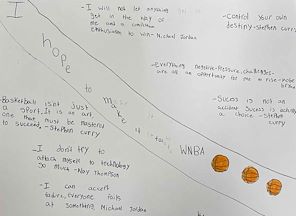 I
hope
to
make
it to
WNBA
-I will not let anything
get in the way of
me and a
enthusiasm to win-Michael Jordan
-Control your own
destiny-stephen curry
-Everything negative-Pressure, challenges-
are all an opportunity for me to rise-Kobe
-Basketball isnt Just
a sport, It is an art
one that must be mastered
to succeed,-Stephen
curry
is not an
accident Sucess is actually
a choice -Stephen
curry
-I don't try to
attach myself to technology
so much -Klay Thompson
-I can accept
failure, everyone fails
at something Michael Jordan